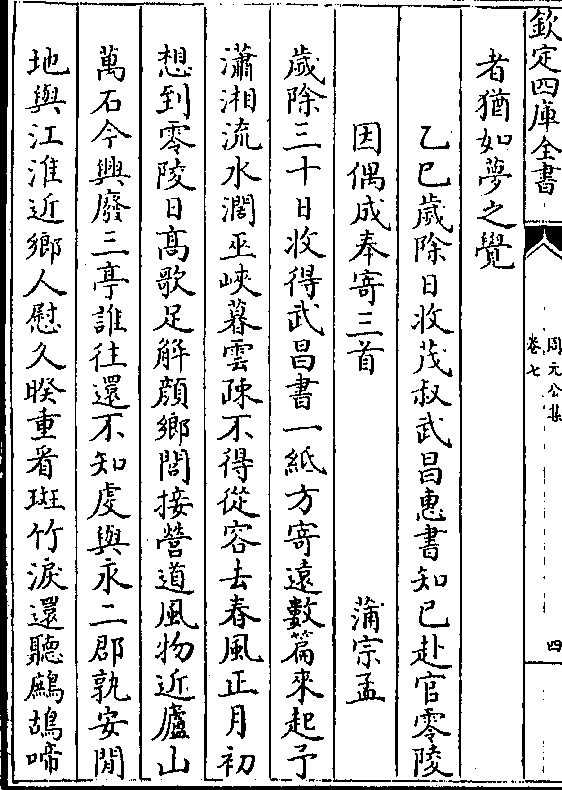 欽定四庫全書
周元公集
卷七
四
者猶如夢之覺
乙巳歲除日收茂叔武昌惠書知已赴官零陵
因偶成奉寄三首
蒲宗孟
歲除三十日收得武昌書一紙方寄遠數篇來起予
瀟湘流水濶巫峽暮雲疎不得從容去春風正月初
想到零陵日髙歌足解顔鄉閭接營道風物近廬山
萬石今興廢三亭誰往還不知虔與永二郡孰安閒
地與江淮近鄉人慰久暌重看斑竹淚還聽鷓鴣啼